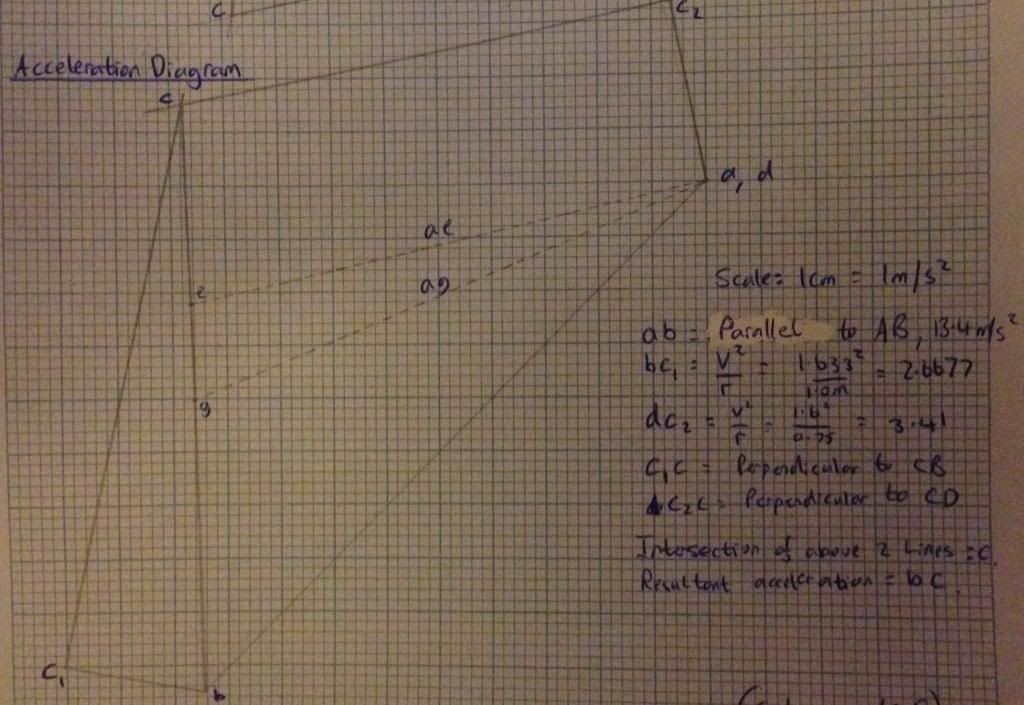 c
c₂
Acceleration Diagram
c
a, d
ae
e
ag
g
Scale= 1cm = 1m/s²
ab = Parallel to AB, 13.4m/s²
bc₁ = V²/r = 1.633²/1.0m = 2.6677
dc₂ = v²/r = 1.6²/0.75 = 3.41
c₁c = Perpendicular to CB
c₂c = Perpendicular to CD
Intersection of above 2 lines = c.
Resultant acceleration = bc.
c₁
b